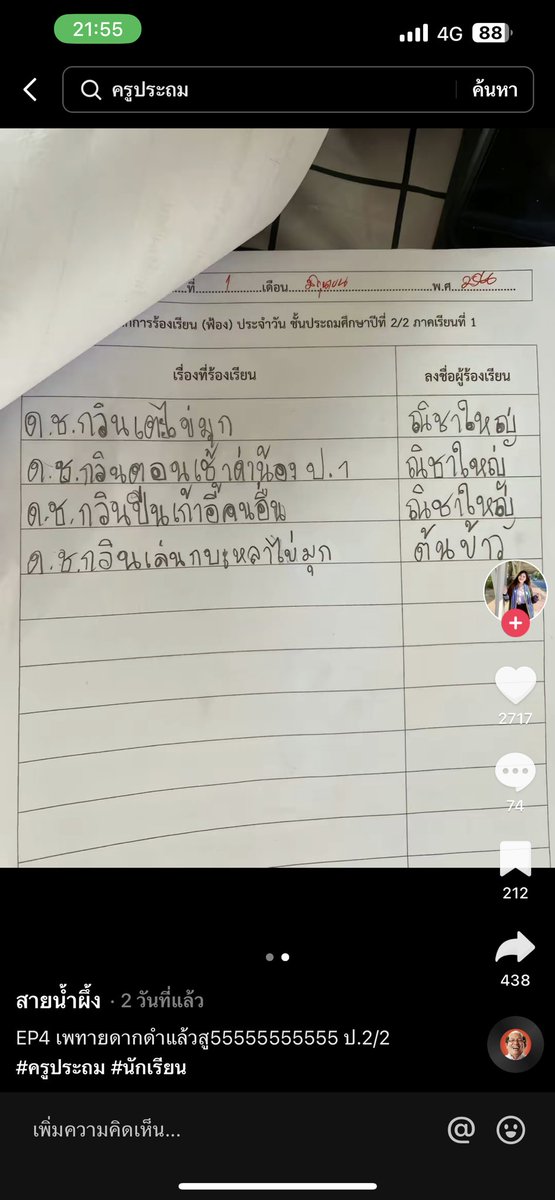 21:55
4G
88
ครูประถม
ค้นหา
ที่ 1 เดือน มิถุนายน พ.ศ. 2566
การร้องเรียน (ฟ้อง) ประจำวัน ชั้นประถมศึกษาปีที่ 2/2 ภาคเรียนที่ 1
เรื่องที่ร้องเรียน ลงชื่อผู้ร้องเรียน
ด.ช.กวินเตะไข่มุก ณิชาใหญ่
ด.ช.กวินตอนเช้าด่าน้อง ป.1 ณิชาใหญ่
ด.ช.กวินปีนเก้าอี้คนอื่น ณิชาใหญ่
ด.ช.กวินเล่นกบเหลาไข่มุก ต้นข้าว
2717
74
212
438
สายน้ำผึ้ง · 2 วันที่แล้ว
EP4 เพทายดากดำแล้วสู55555555555 ป.2/2
#ครูประถม #นักเรียน
เพิ่มความคิดเห็น...